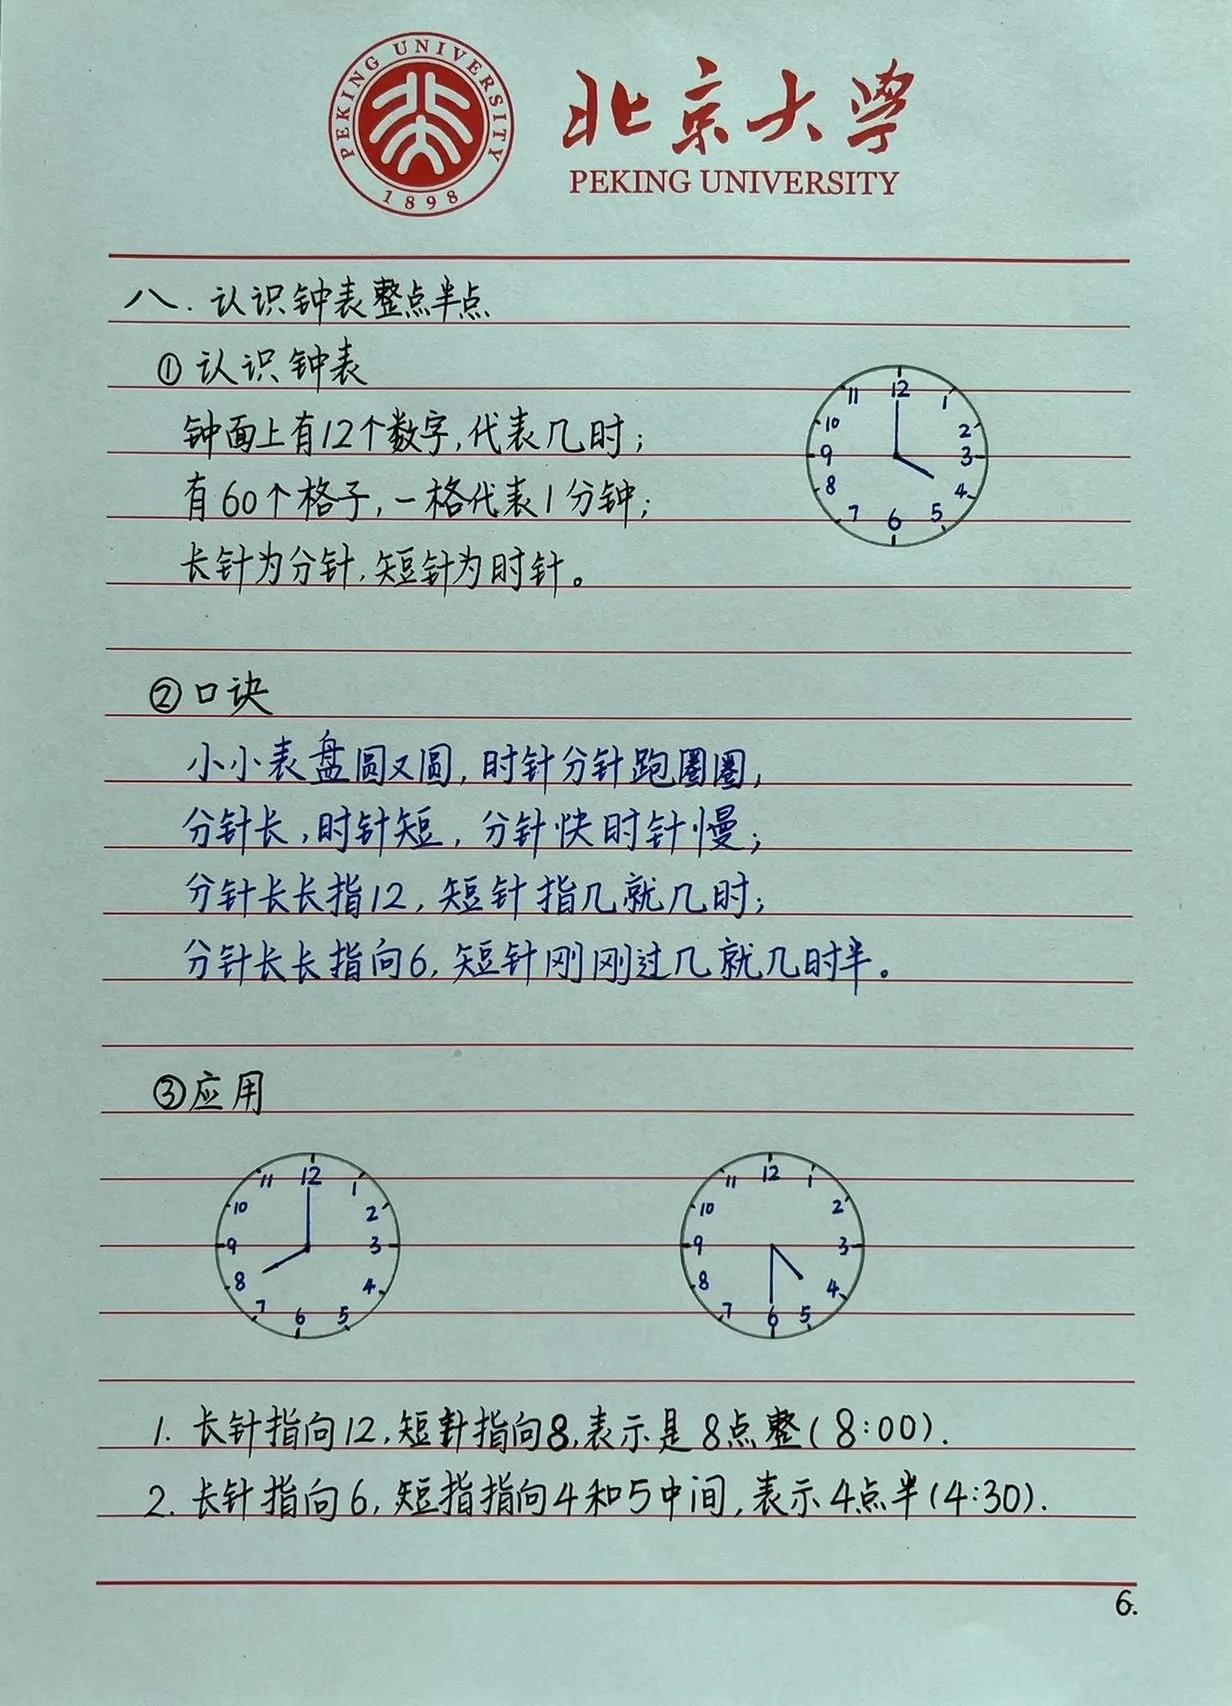 PEKING UNIVERSITY
1898
北京大学
PEKING UNIVERSITY
八.认识钟表整点半点
①认识钟表
钟面上有12个数字,代表几时;
有60个格子,一格代表1分钟;
长针为分针,短针为时针。
12
11 1
10 2
9 3
8 4
7 5
6
②口诀
小小表盘圆又圆,时针分针跑圈圈,
分针长,时针短,分针快时针慢;
分针长长指12,短针指几就几时;
分针长长指向6,短针刚刚过几就几时半。
③应用
12
11 1
10 2
9 3
8 4
7 5
6
12
11 1
10 2
9 3
8 4
7 5
6
1. 长针指向12,短針指向8,表示是8点整(8:00).
2. 长针指向6,短指指向4和5中间,表示4点半(4:30).
6.